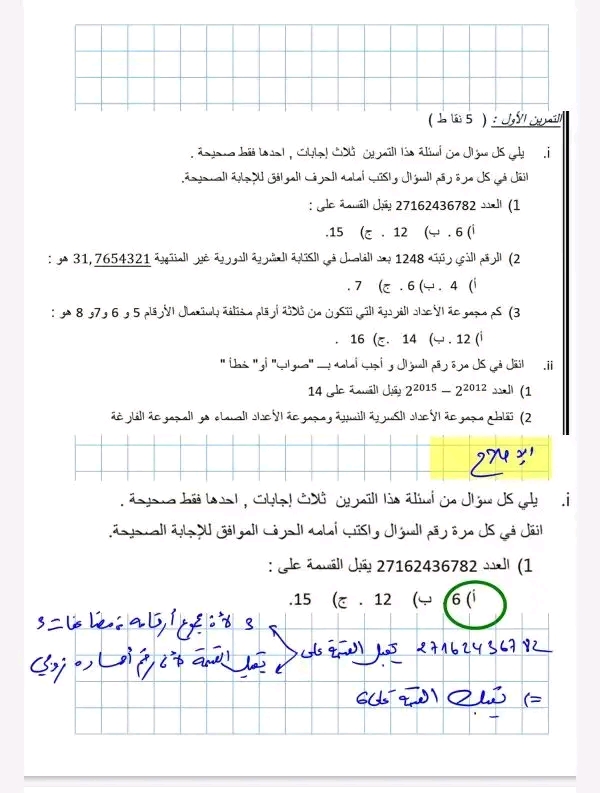 التمرين الأول : ( 5 نقاط )
i. يلي كل سؤال من أسئلة هذا التمرين ثلاث إجابات , احدها فقط صحيحة .
انقل في كل مرة رقم السؤال واكتب أمامه الحرف الموافق للإجابة الصحيحة.
1) العدد 27162436782 يقبل القسمة على :
أ) 6 . ب) 12 . ج) 15.
2) الرقم الذي رتبته 1248 بعد الفاصل في الكتابة العشرية الدورية غير المنتهية 31,7654321 هو :
أ) 4 . ب) 6 . ج) 7 .
3) كم مجموعة الأعداد الفردية التي تتكون من ثلاثة أرقام مختلفة باستعمال الأرقام 5 و 6 و7 و 8 هو :
أ) 12 . ب) 14 .ج) 16 .
ii. انقل في كل مرة رقم السؤال و أجب أمامه بــ "صواب" أو" خطأ "
1) العدد 2²⁰¹⁵ − 2²⁰¹² يقبل القسمة على 14
2) تقاطع مجموعة الأعداد الكسرية النسبية ومجموعة الأعداد الصماء هو المجموعة الفارغة
الإصلاح
i. يلي كل سؤال من أسئلة هذا التمرين ثلاث إجابات , احدها فقط صحيحة .
انقل في كل مرة رقم السؤال واكتب أمامه الحرف الموافق للإجابة الصحيحة.
1) العدد 27162436782 يقبل القسمة على :
أ) 6 ب) 12 . ج) 15.
3 لأن مجموع أرقامه من مضاعفات 3
27162436782 يقبل القسمة على
يقبل القسمة لأن رقم آحاده زوجي
(= يقبل القسمة على 6